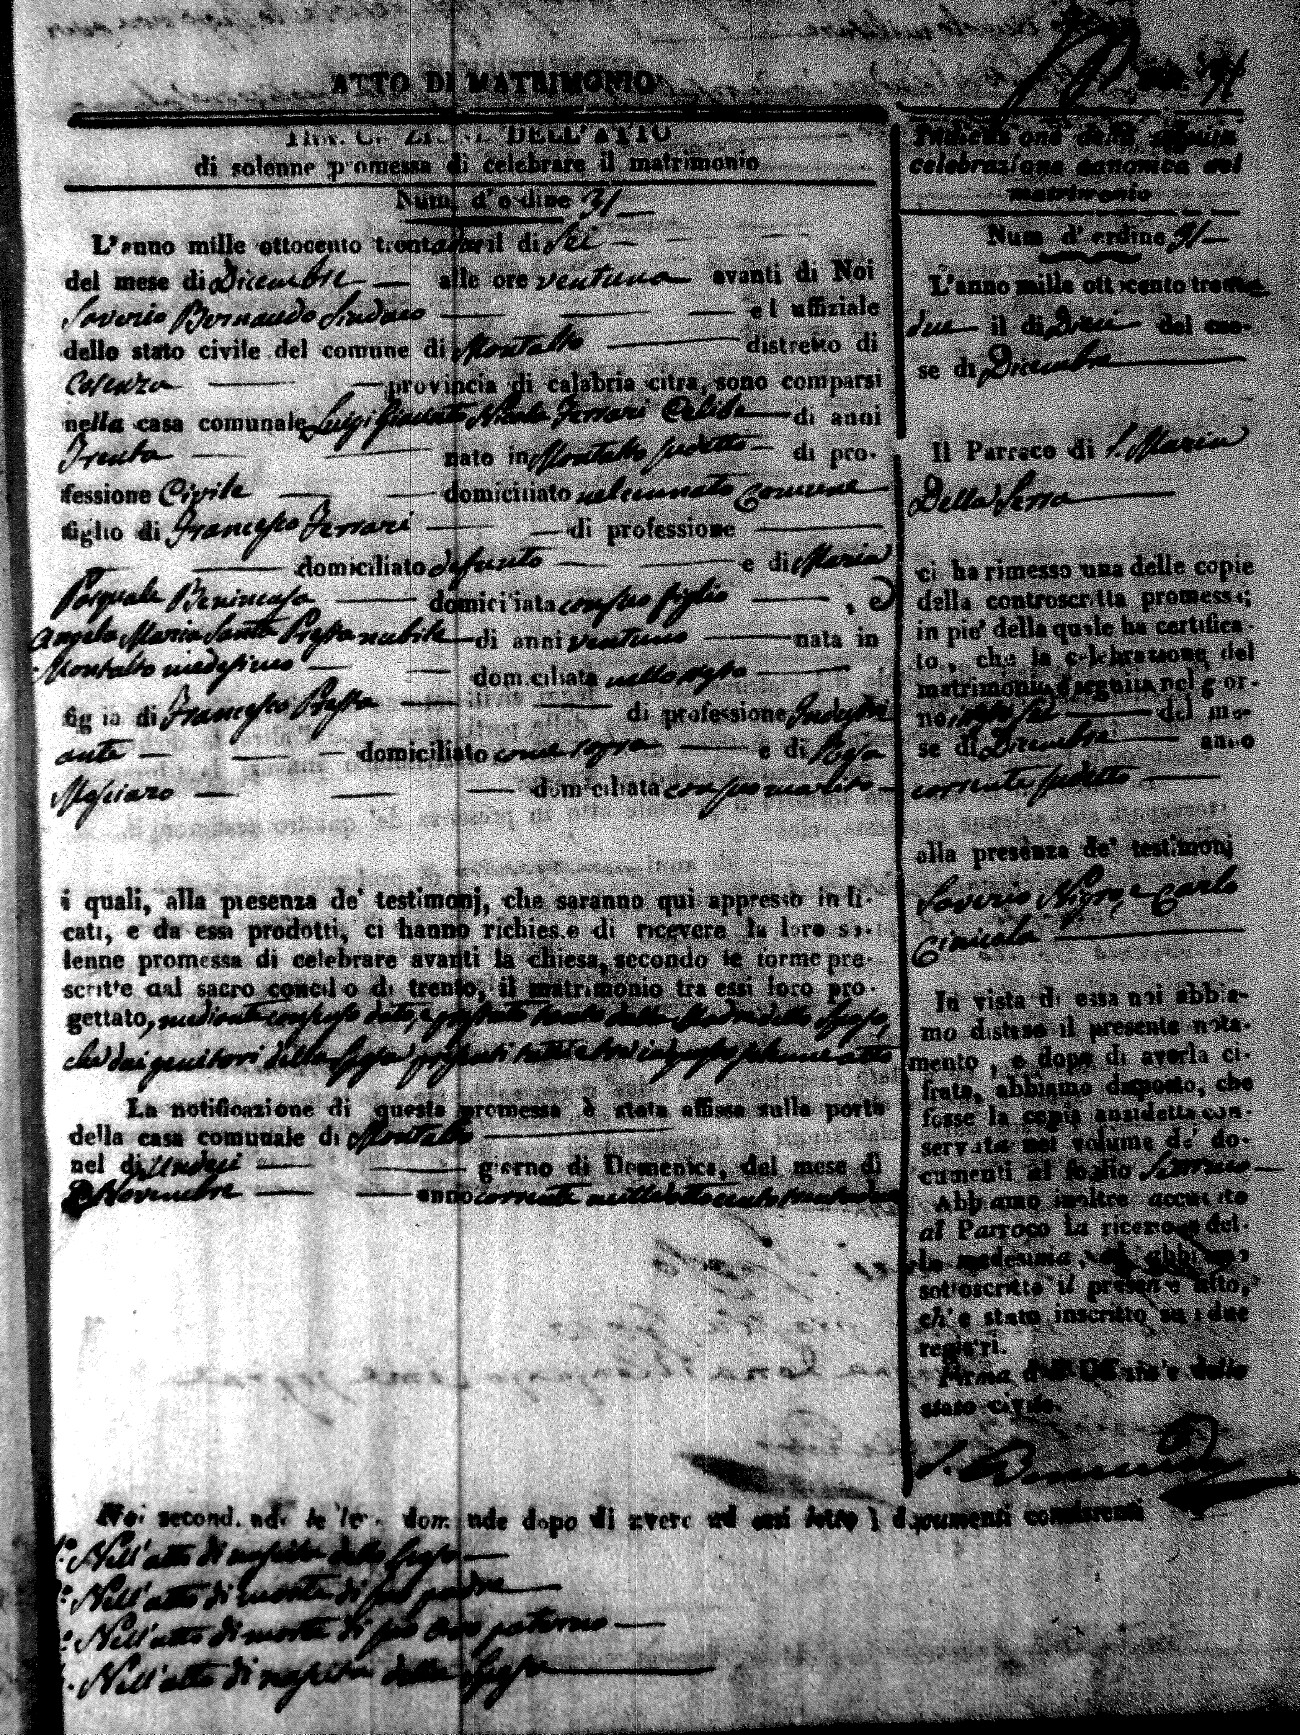 ATTO DI MATRIMONIO
DELL'ATTO
di solenne promessa di celebrare il matrimonio
Num. d'ordine 31
L'anno mille ottocento trentadue il di Sei
del mese di Dicembre alle ore ventuna avanti di Noi
Saverio Bernaudo Sindaco ed uffiziale
dello stato civile del comune di Montalto distretto di
Cosenza provincia di calabria citra, sono comparsi
nella casa comunale Luigi Nicola Ferrari Celibe di anni
Trenta nato in Montalto sudetto di pro-
fessione Civile domiciliato nel cennato Comune
figlio di Francesco Ferrari di professione
domiciliato defunto e di Maria
Pasquale Benincasa domiciliata con suo figlio , e
Angela Maria Santa Prespa nubile di anni ventuno nata in
Montalto medesimo domiciliata nello stesso
figlia di Francesco di professione Indust
ante domiciliato come sopra e di Rosa
domiciliata con suo marito
i quali, alla presenza de' testimonj, che saranno qui appresso indi-
cati, e da essi prodotti, ci hanno richiesto di ricevere la loro so-
lenne promessa di celebrare avanti la chiesa, secondo le forme pre-
scritte dal sacro concilio di trento, il matrimonio tra essi loro pro-
gettato, mediante consenso dato, e prestato tanto dalla Madre dello sposo,
che dai genitori della sposa presenti tutti atto
La notificazione di questa promessa è stata affissa sulla porta
della casa comunale di Montalto
nel di Undeci giorno di Domenica, del mese di
Novembre anno corrente mille ottocento trentadue
Noi secondando le dom nde dopo di avere ad essi letto i documenti consistenti
Nell'atto di nascita dello sposo
Nell'atto di morte di suo padre
Nell'atto di morte di suo avo paterno
Nell'atto di nascita della sposa
Indicazione della seguita
celebrazione canonica del
matrimonio
Num d'ordine 31
L'anno mille ottocento trenta
due il di Dieci del me-
se di Dicembre
Il Parroco di S. Maria
Della Serra
ci ha rimesso una delle copie
della controscritta promessa;
in piè della quale ha certifica-
to, che la celebrazione del
matrimonio è seguita nel gior-
no del me-
se di Dicembre anno
corrente sudetto
alla presenza de' testimonj
Saverio Nigro, e Carlo
Cinicola
In vista di essa noi abbia-
mo disteso il presente nota-
mento, e dopo di averla ci-
frata, abbiamo disposto, che
fosse la copia anzidetta con-
servata nel volume de' do-
cumenti al foglio
Abbiamo inoltre accusato
al Parroco la ricezione del-
la medesima, ed abbiamo
sottoscritto il presente atto,
ch'è stato inscritto su i due
registri.
Firma dell'Uffiziale dello
stato civile.
S. Bernaudo